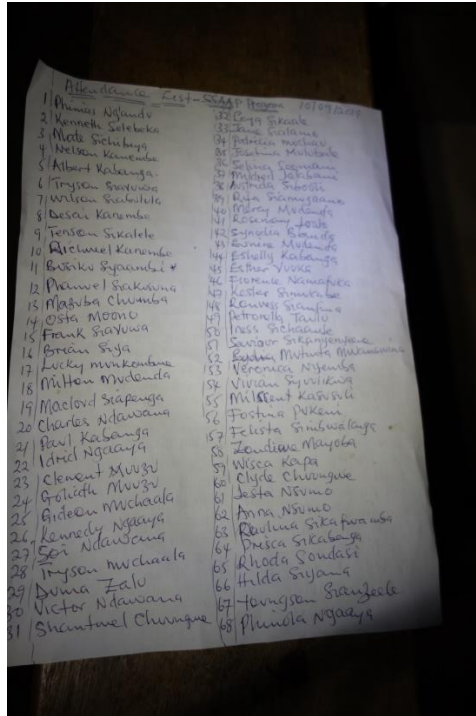 Attendance List - Program
1 Phinias Ngandu
2 Kenneth Selebeka
3 Mate Sichibeya
4 Nelson Kanembe
5 Albert Kabanga
6 Tryson Siavuwa
7 Wilson
8 Desai Kanembe
9 Tenson Sikalele
10 Richwel Kanembe
11 Busiku Syaambi
12 Phanwel Siakasuna
13 Mazuba Chumba
14 Osta Moono
15 Frank Siavuwa
16 Brian Siya
17 Lucky Munkombwe
18 Milton Mudenda
19 Maclovd Siapenga
20 Charles Ndawana
21 Paul Kabanga
22 Idrid Ngaaya
23 Clement Muuzu
24 Goliath Muuzu
25 Gideon Muchaala
26 Kennedy Ngaaya
27 Sori Ndawana
28 Tryson Muchaala
29 Duma Zalu
30 Victor Ndawana
31 Shantwel Chuungwe
32 Sikaale
33 Jane Sialame
34 Patricia
35 Josephina
36 Selina
37
38
39 Rita
40 Mercy Mudenda
41 Rosemary
42 Synodia
43 Mudenda
44 Eshelly Kabanga
45 Esther Vuuka
46 Florence Namafuka
47 Kester
48
49 Petronella Tambo
50 Iness Sichaambe
51 Saviour
52 Mutinta
53 Veronica Nyemba
54 Vivian
55 Milicent Kasusuli
56 Fostina Pukeni
57 Felista Simbwalanga
58 Londiwe Mayoba
59 Wisca Kapa
60 Clyde Chuungwe
61 Jesta Nsumo
62 Anna Nsumo
63 Raulina Sikafwamba
64 Prisca Sikabenga
65 Rhoda Sondasi
66 Hilda Siyana
67 Youngson Sianzeele
68 Phinola Ngaaya